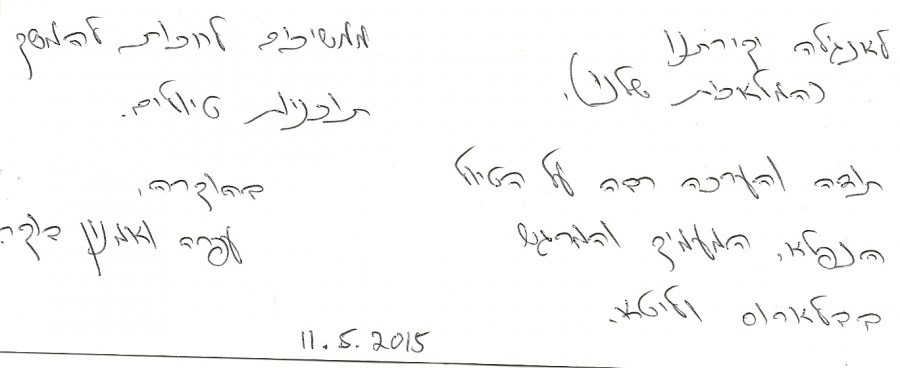 לאנג'לה יקירתנו
(המלאכית שלנו),
תודה והערכה רבה על הטיול
הנפלא, המעמיק והמרגש
בבלארוס וליטא.
ממשיכים לחכות להמשך
תוכנית טיולים.
בהוקרה,
עפרה ואמנון
11.5.2015